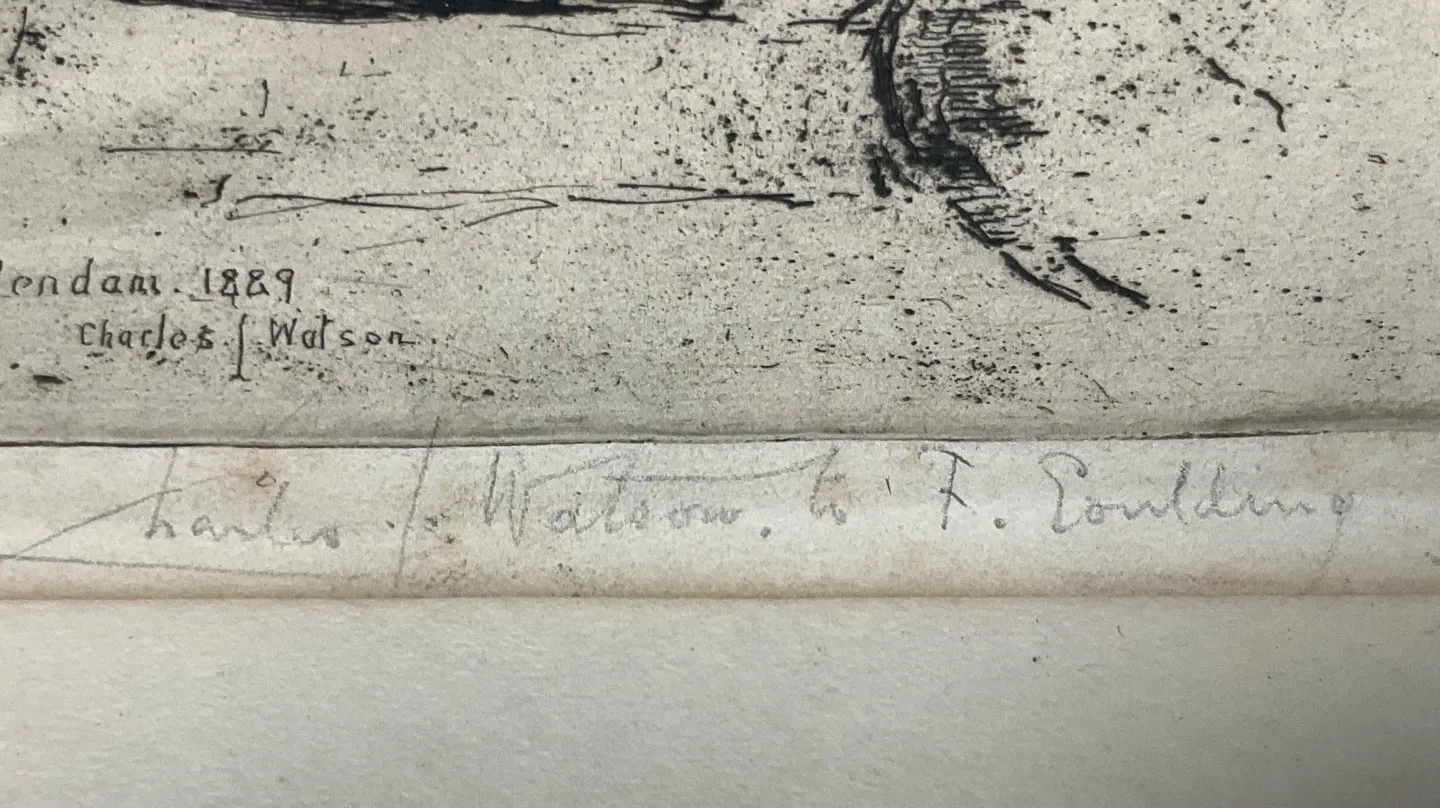 lendam. 1889
Charles. J. Watson.
Charles J Watson. to F. Goulding